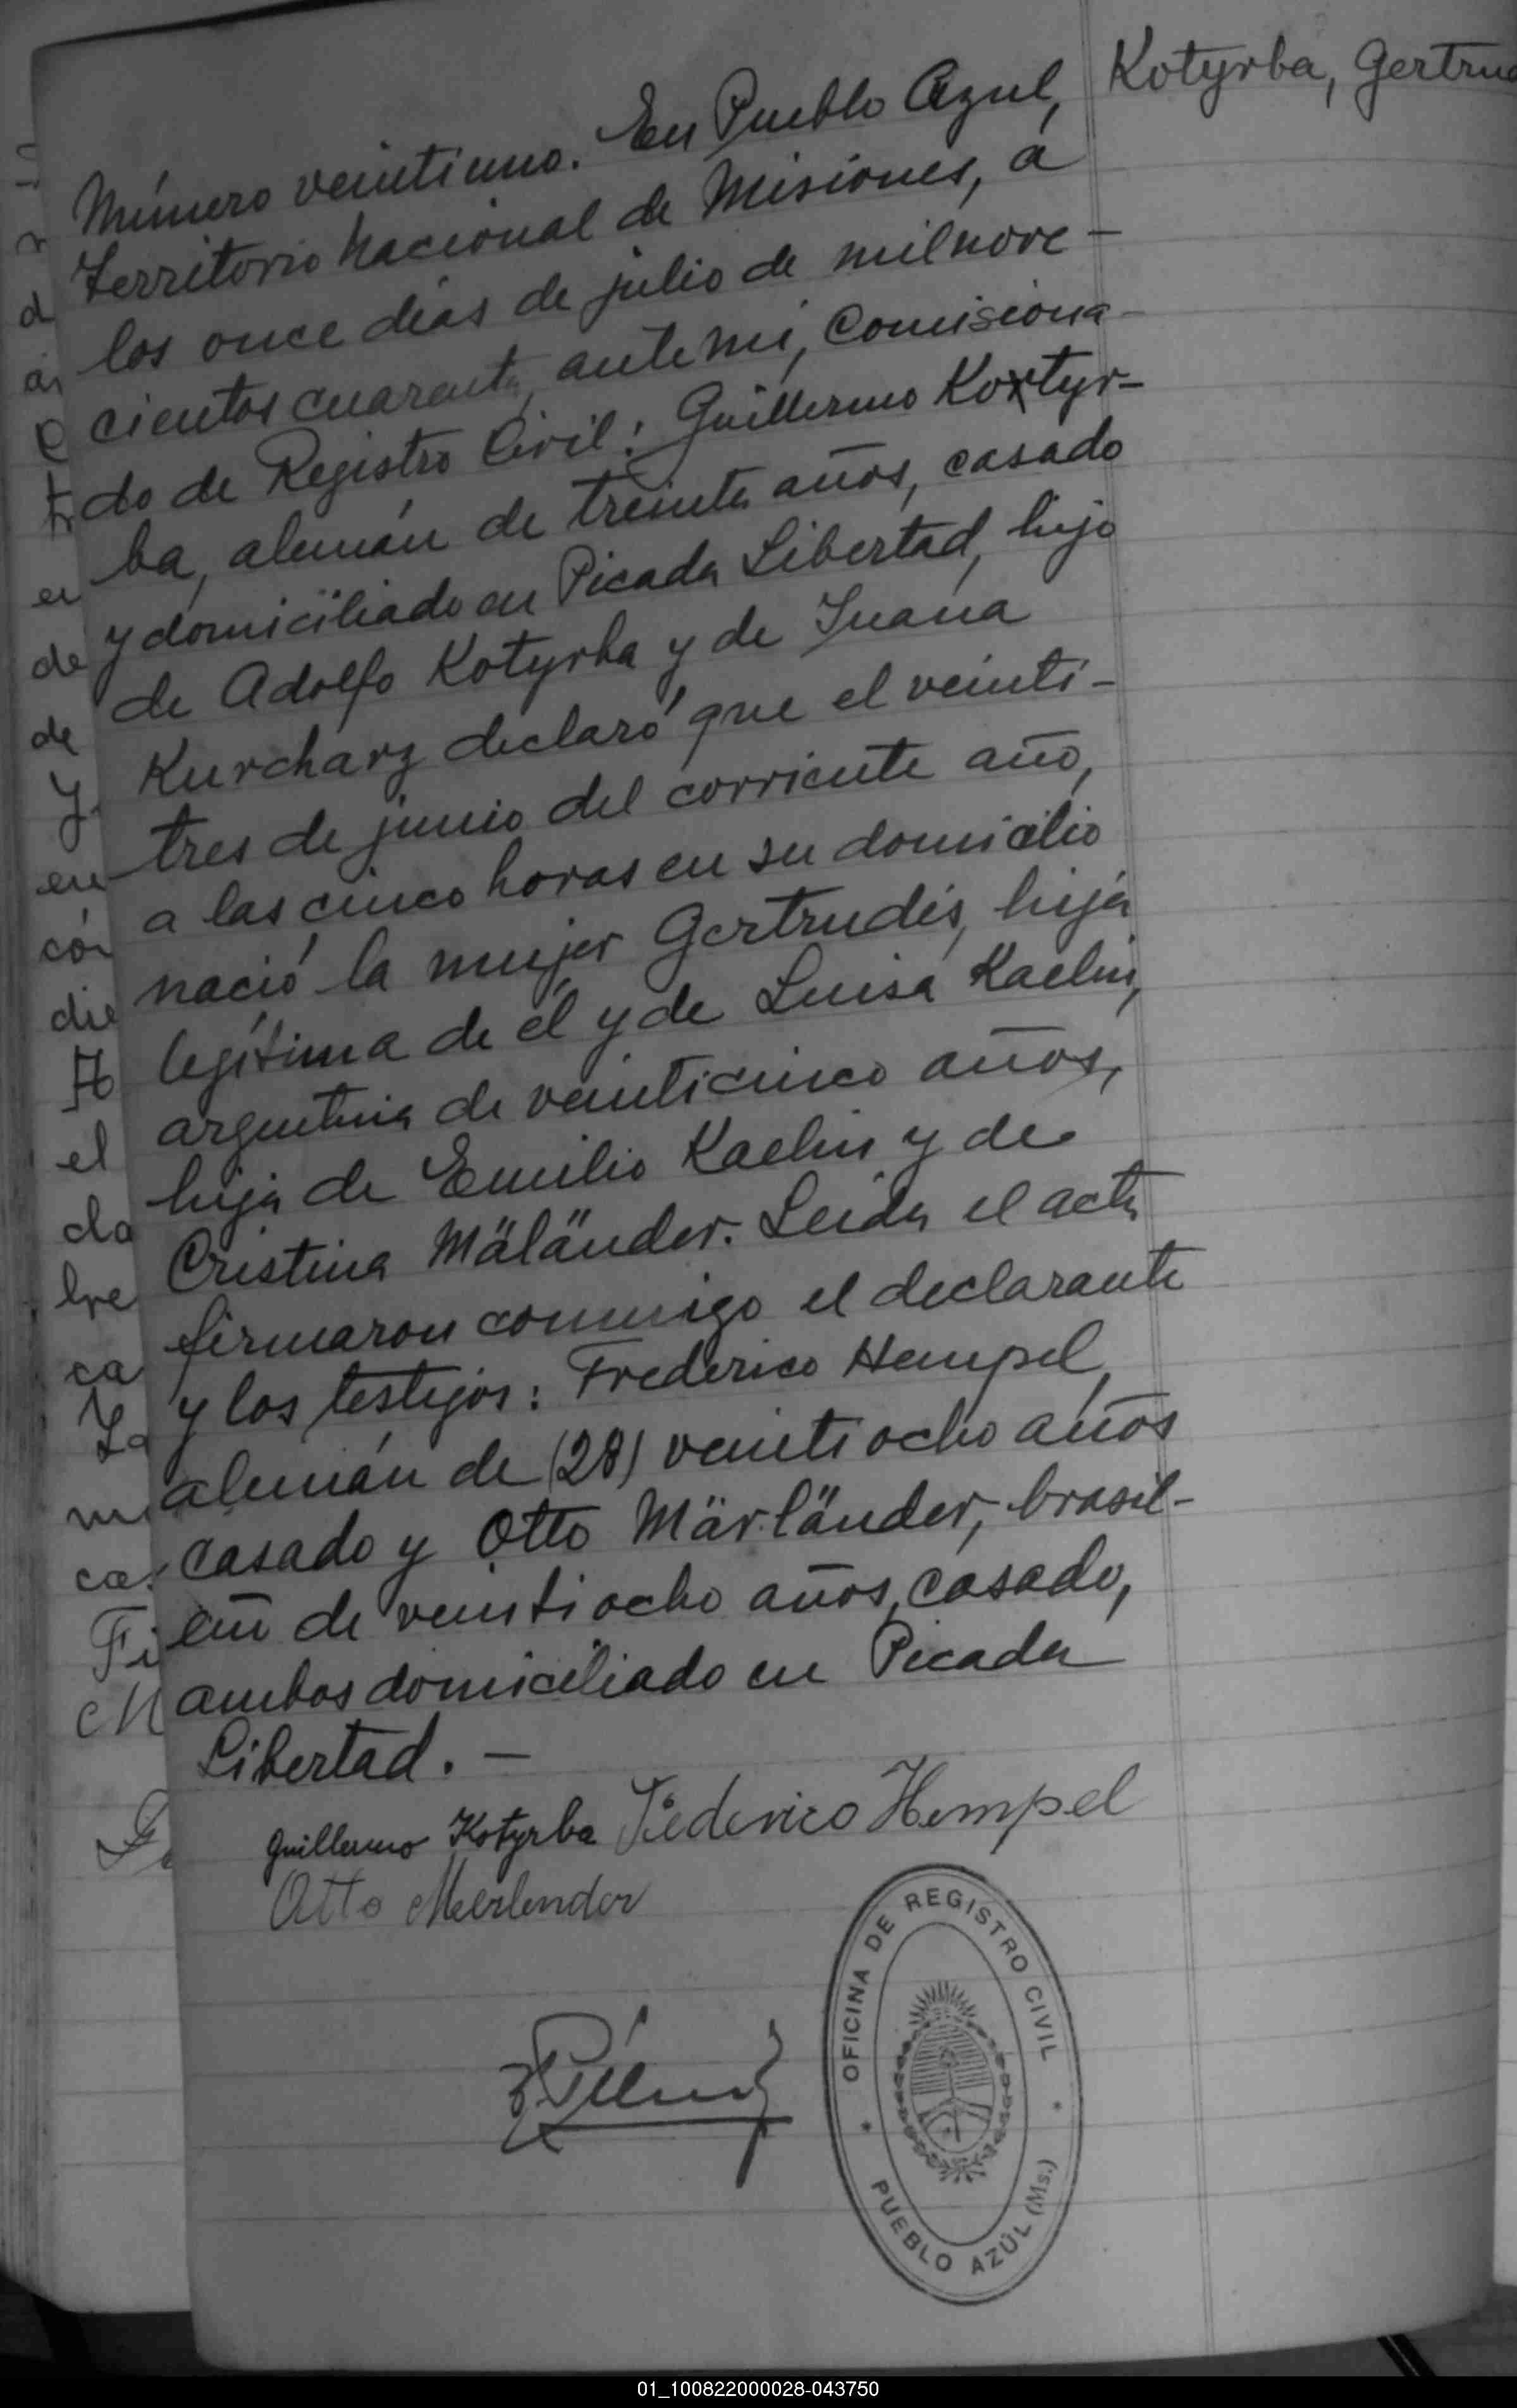 Kotyrba, Gertrud
Número veintiuno. En Pueblo Azul,
Territorio Nacional de Misiones, a
los once días de julio de milnove-
cientos cuarenta, ante mi, Comisiona-
do de Registro Civil: Guillermo Koxtyr-
ba, alemán de treinta años, casado
y domiciliado en Picada Libertad, hijo
de Adolfo Kotyrba y de Juana
Kurcharz declaró que el veinti-
tres de junio del corriente año,
a las cinco horas en su domicilio
nació la mujer Gertrudis, hija
legítima de él y de Luisa Kaelin,
argentina de veinticinco años,
hija de Emilio Kaelin y de
Cristina Mäländer. Leida el acta
firmaron conmigo el declarante
y los testigos: Frederico Hempel,
alemán de (28) veintiocho años
casado y Otto Märländer, brasil-
eño de veintiocho años, casado,
ambos domiciliado en Picada
Libertad. —
Guillermo Kotyrba Federico Hempel
Otto Merlender
OFICINA DE REGISTRO CIVIL
* PUEBLO AZÚL (Ms.) *
01_100822000028-043750